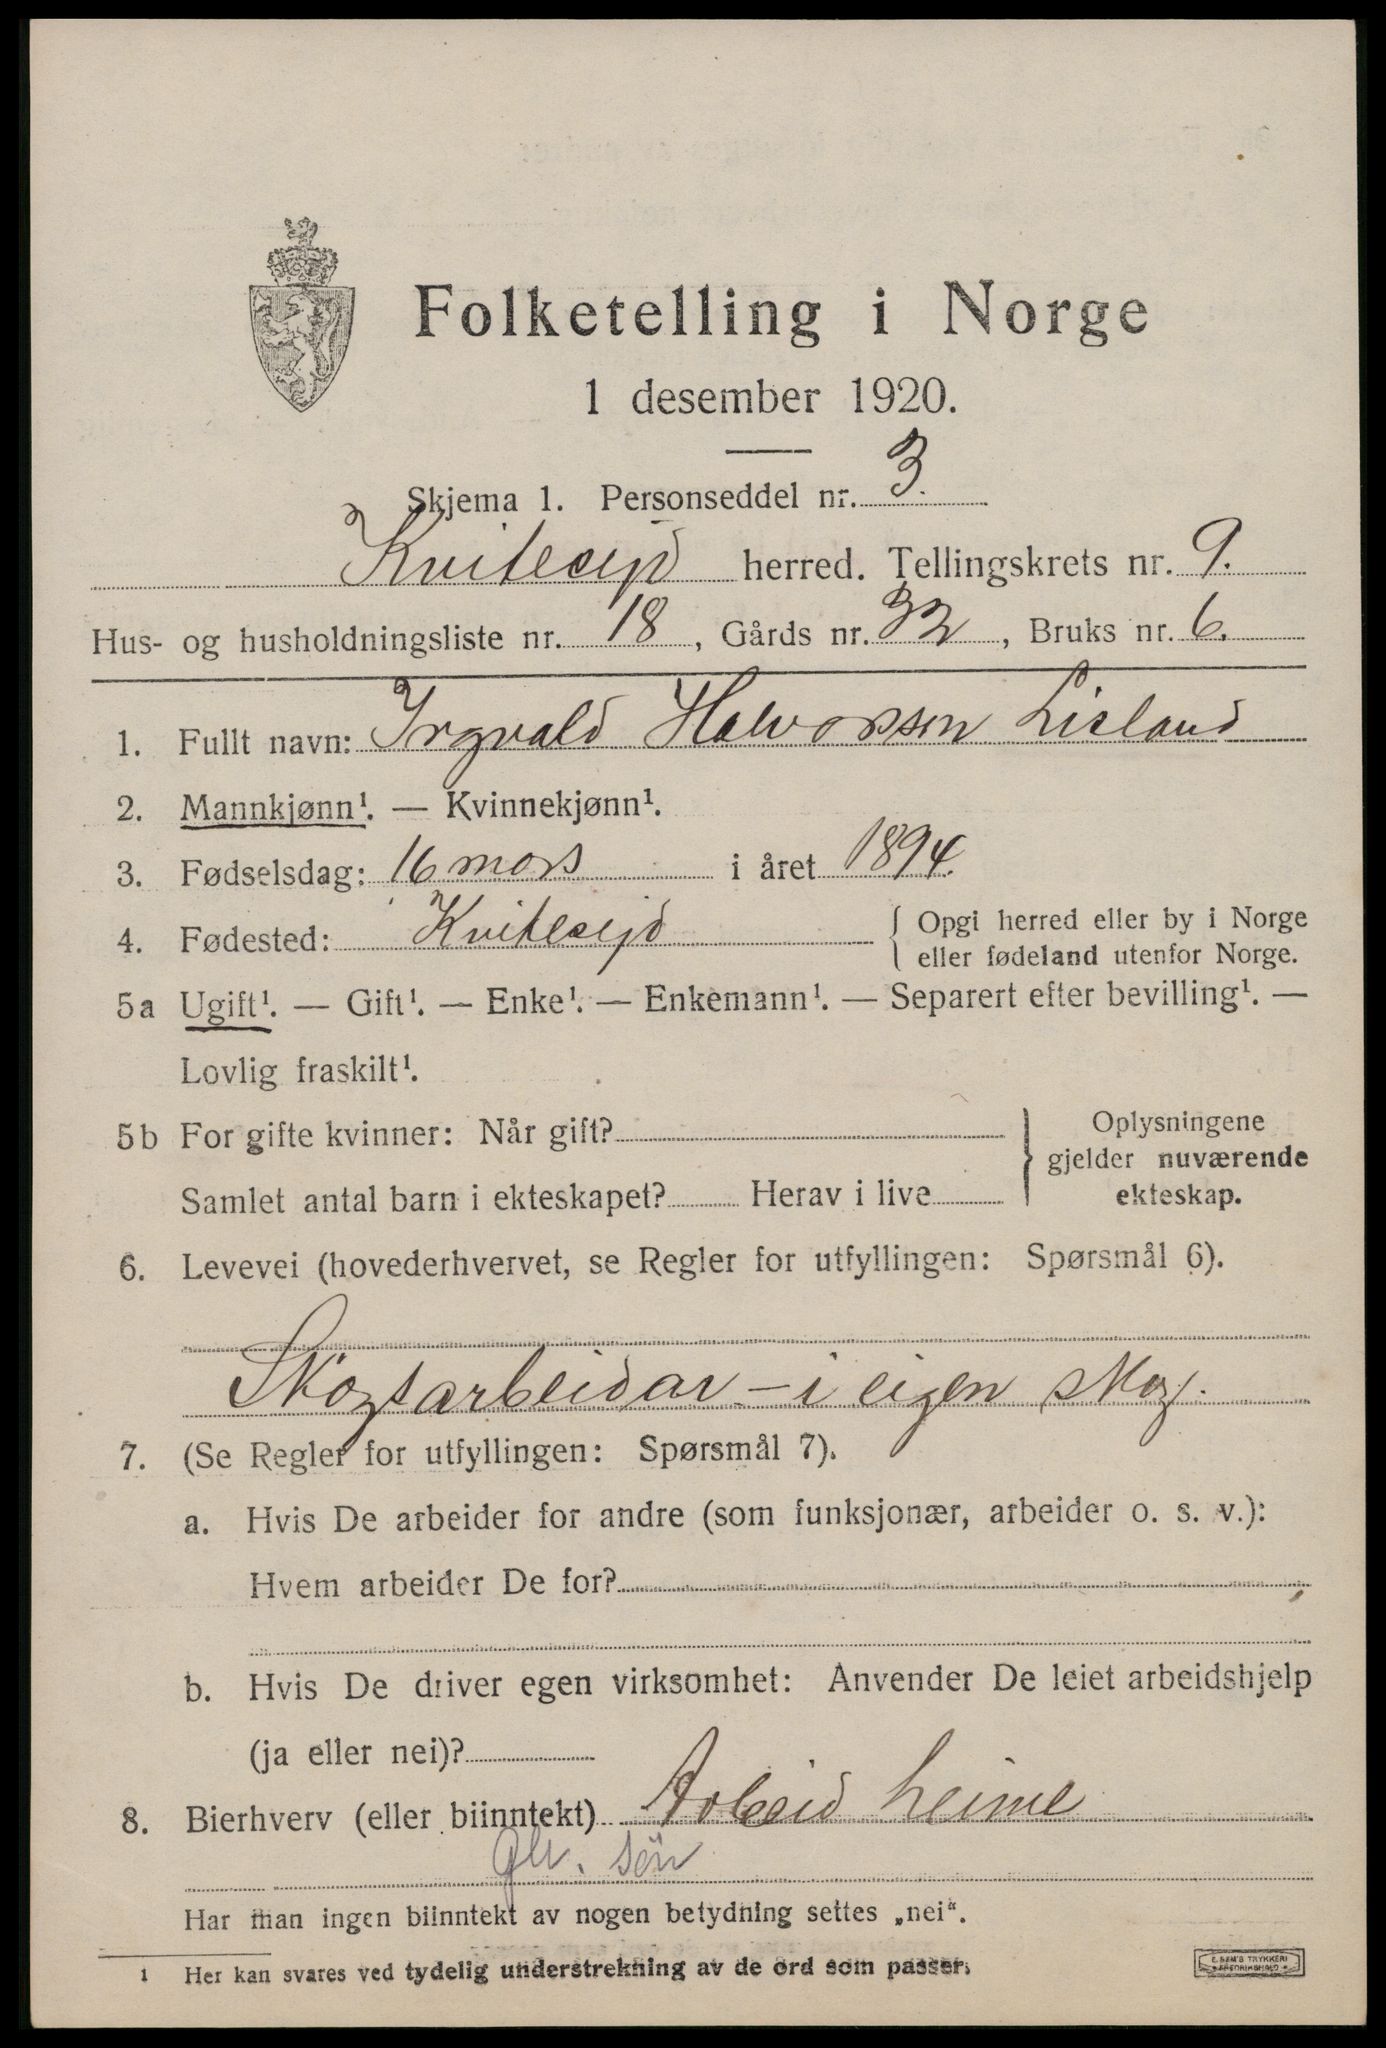 Folketelling i Norge
1 desember 1920.
Skjema 1. Personseddel nr. 3.
Kvitesejd herred. Tellingskrets nr. 9.
Hus- og husholdningsliste nr. 18, Gårds nr. 32, Bruks nr. 6.
1. Fullt navn: Ingvald Halvorssen Lisland
2. Mannkjønn¹. — Kvinnekjønn¹.
3. Fødselsdag: 16 mars i året 1894.
4. Fødested: Kvitesejd { Opgi herred eller by i Norge
eller fødeland utenfor Norge.
5a Ugift¹. — Gift¹. — Enke¹. — Enkemann¹. — Separert efter bevilling¹. —
Lovlig fraskilt¹.
5b For gifte kvinner: Når gift? } Oplysningene
gjelder nuværende
Samlet antal barn i ekteskapet? Herav i live ekteskap.
6. Levevei (hovederhvervet, se Regler for utfyllingen: Spørsmål 6).
Skogsarbeidar - i eigen skog.
7. (Se Regler for utfyllingen: Spørsmål 7).
a. Hvis De arbeider for andre (som funksjonær, arbeider o. s. v.):
Hvem arbeider De for?
b. Hvis De driver egen virksomhet: Anvender De leiet arbeidshjelp
(ja eller nei)?
8. Bierhverv (eller biinntekt) Arbeid heime
søn
Har man ingen biinntekt av nogen betydning settes „nei“.
1 Her kan svares ved tydelig understrekning av de ord som passer.
E. SEM'S TRYKKERI
FREDRIKSHALD